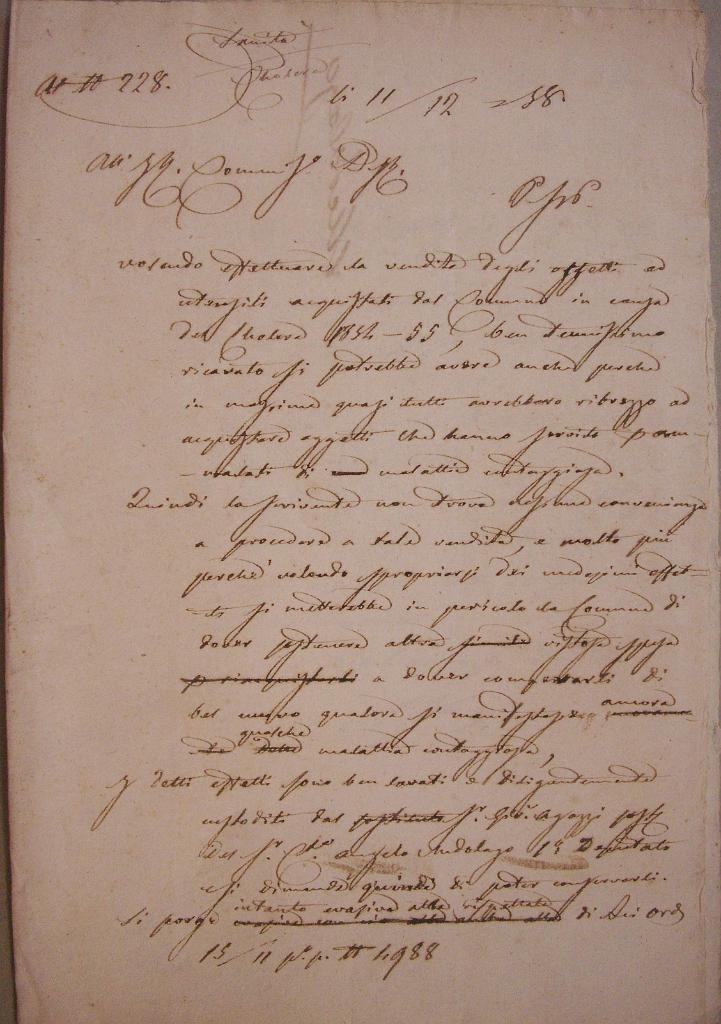 Sanità
Cholera
N° 228.
li 11/12 58
All' I. R. Commis.° Dist.
volendo effettuare la vendita degli oggetti ed
utensili acquistati dal Comune in causa
del Cholera 1854-55, ben tenuissimo
ricavato si potrebbe avere anche perchè
in massima quasi tutti avrebbero ribrezzo ad
acquistare oggetti che hanno servito
malati di malattia contaggiosa.
Quindi la scrivente non trova nessuna convenienza
a procedere a tale vendita, e molto più
perchè volendo spropriarsi dei medesimi effet-
ti si metterebbe in pericolo la Comune di
dover sostenere altra simile vistosa spesa
a dover comperarli di
bel nuovo qualora si manifestasse ancora
qualche malattia contaggiosa,
I detti effetti sono ben lavati e diligentemente
custoditi dal Sr. Agazzi
del Sr. Angelo Andolago 1° Deputato
e si dimanda quindi di poter conservarli.
Si porge intanto evasiva alla rispettata di lei ord
15/11 p. p. N 4988